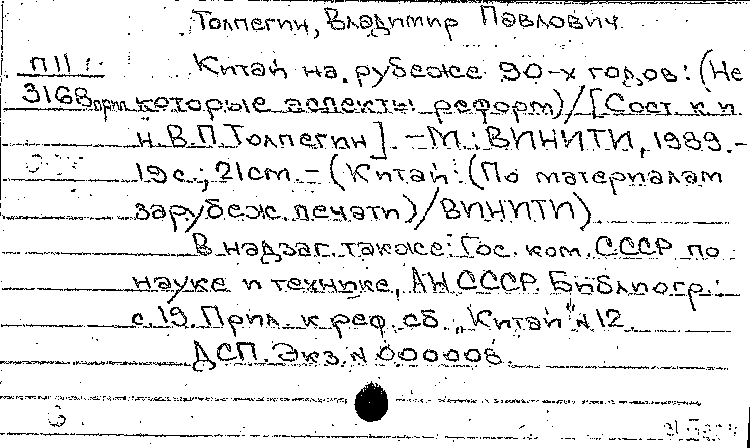 Толпегин, Владимир Павлович.
П11
3168 прил
Китай на рубеже 90-х годов: (Не
которые аспекты реформ)/[Сост. к.п.
н. В.П.Толпегин]. – М.: ВИНИТИ, 1989.–
19с.; 21cm. – (Китай: (По материалам
зарубеж. печати)/ВИНИТИ).
В надзаг. также: Гос. ком. СССР по
науке и технике, АН СССР. Библиогр.:
с.19. Прил. к реф. сб. „Китай" N12.
ДСП. Экз. N 000006.